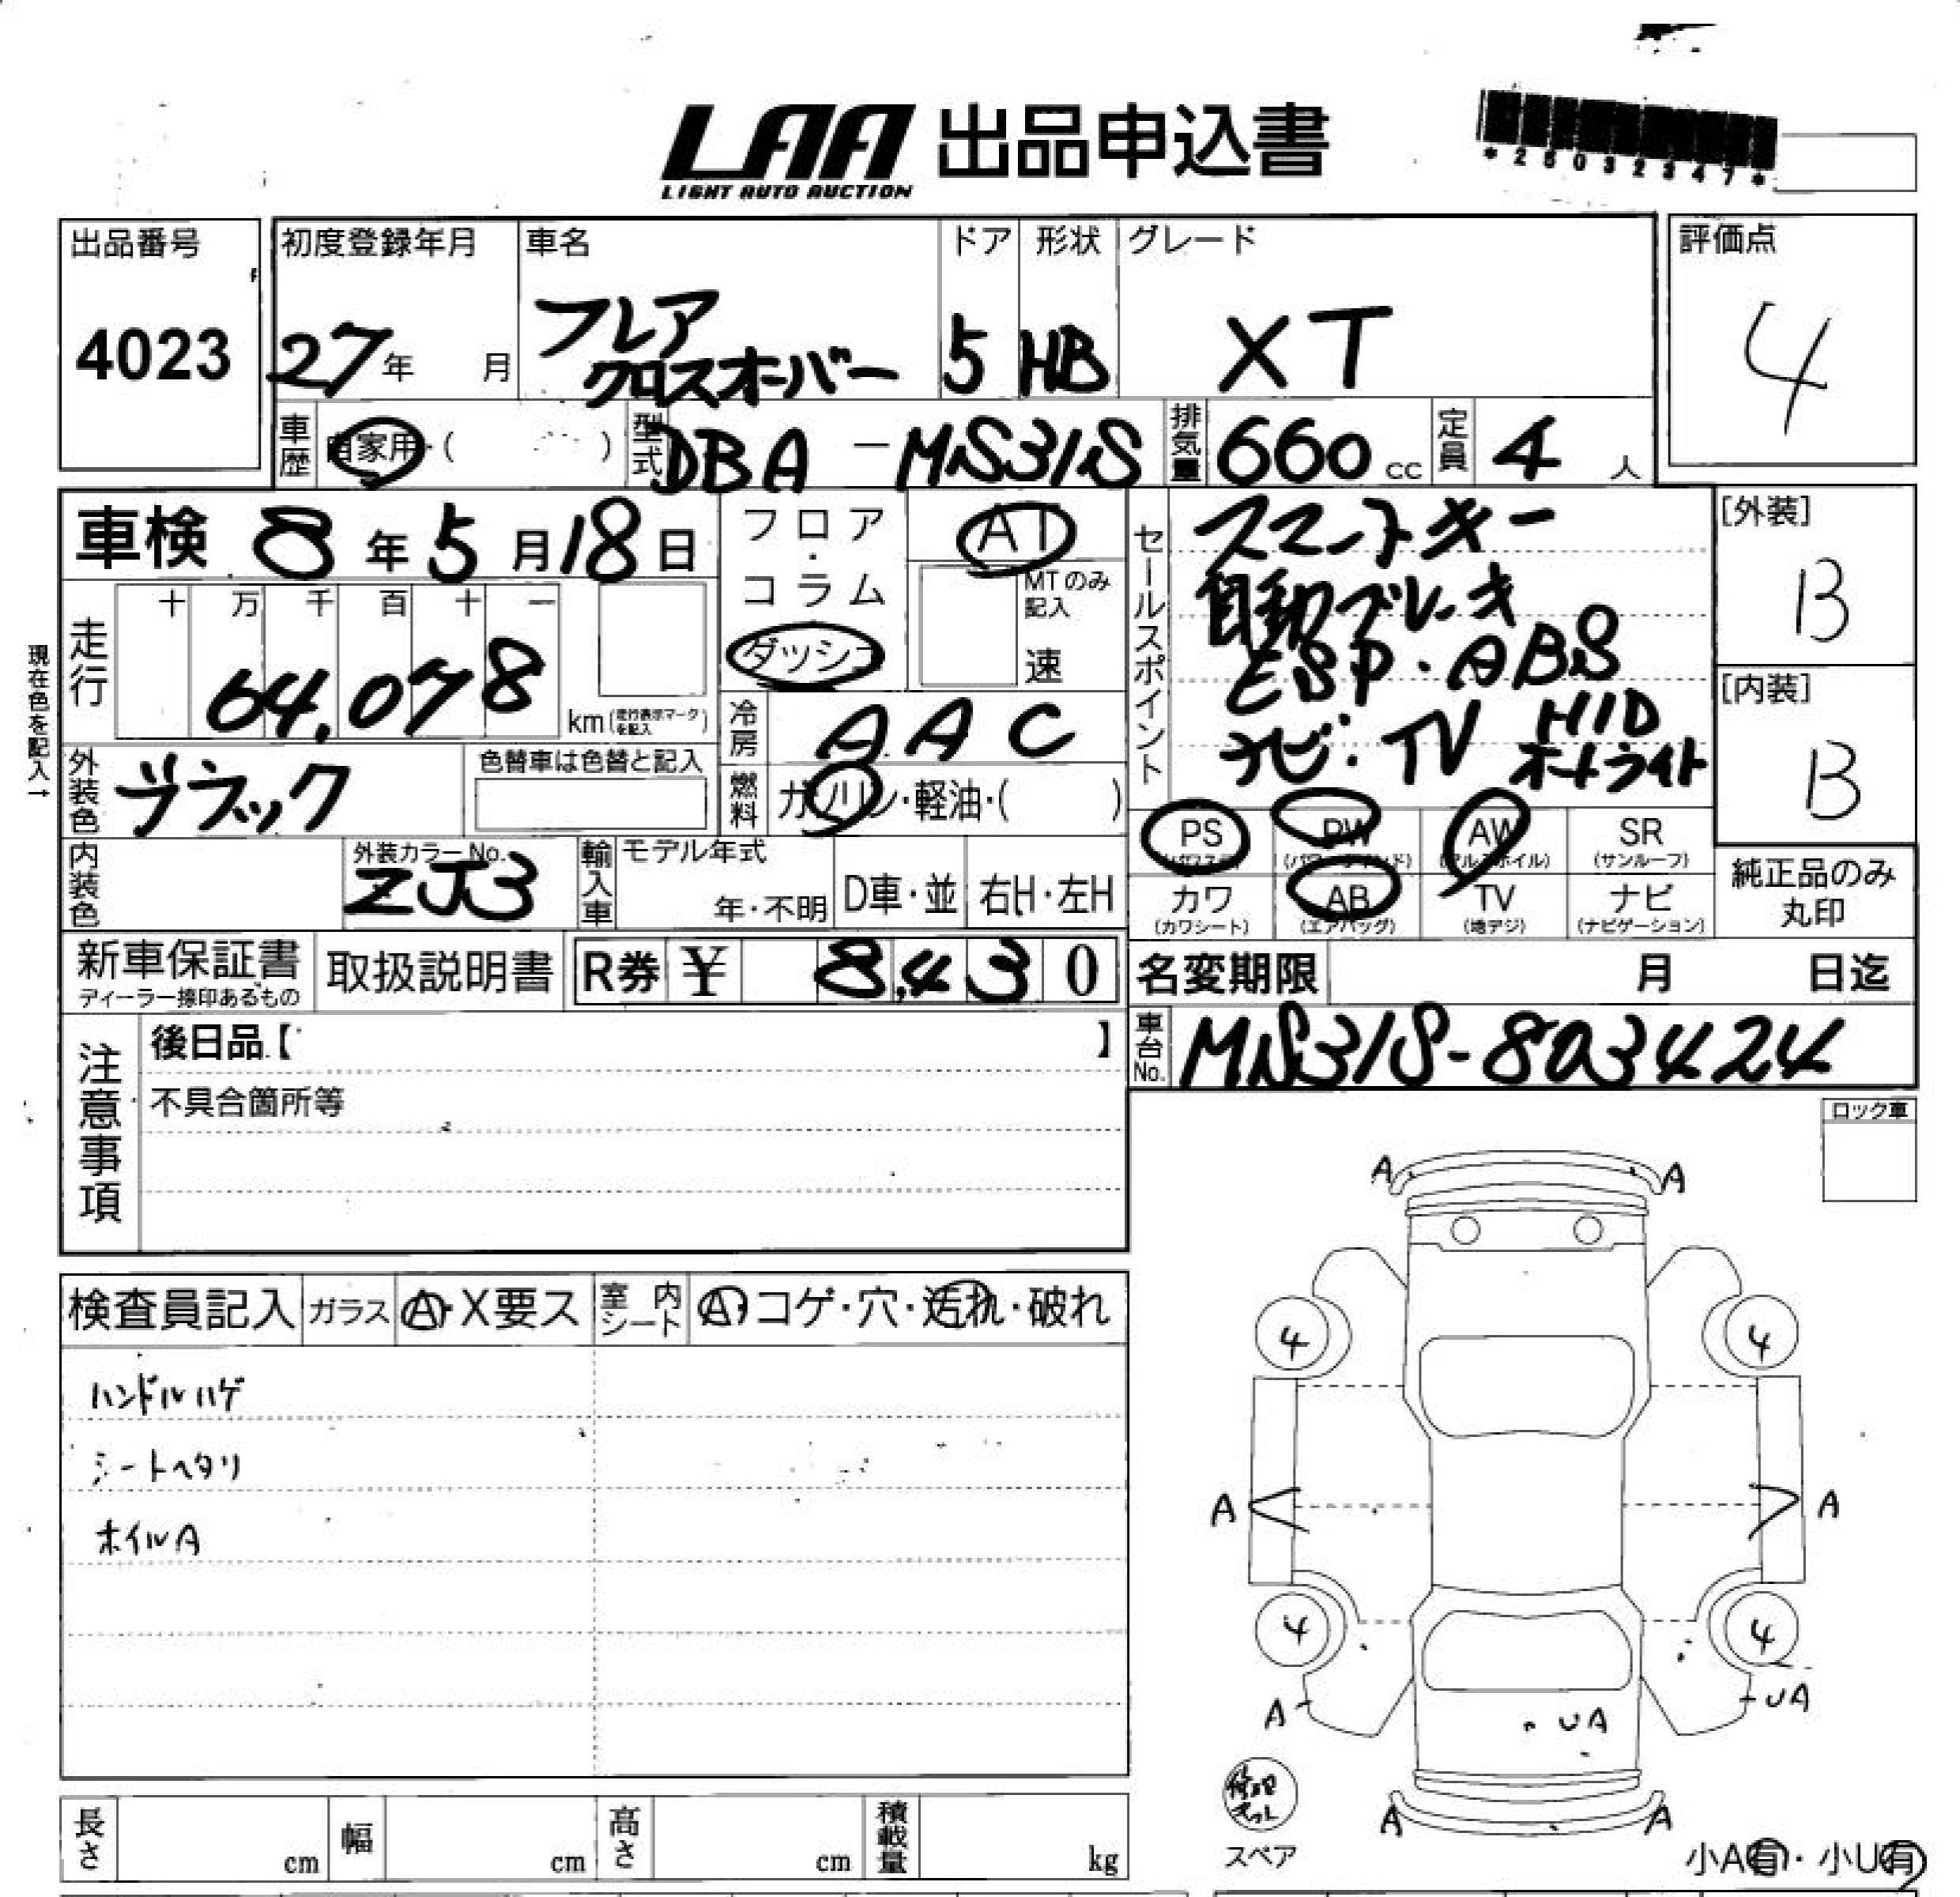 LAA 出品申込書
LIGHT AUTO AUCTION
*26032347*
出品番号
4023
初度登録年月
27年 月
車名
フレア
クロスオーバー
ドア
5
形状
HB
グレード
XT
評価点
4
車歴
自家用・( )
型式
DBA-MS31S
排気量
660 cc
定員
4 人
車検 8年5月18日
フロア・コラム
ダッシュ
AT
MTのみ記入
速
セールスポイント
スマートキー
自動ブレーキ
ESP・ABS
ナビ・TV HID
オートライト
[外装]
B
[内装]
B
現在色を記入→
走行
十 万 千 百 十 一
64,078
km(走行表示マークを記入)
冷房
AAC
外装色
ブラック
色替車は色替と記入
燃料
ガソリン・軽油・( )
PS
(パワステ)
PW
(パワーウインド)
AW
(アルミホイル)
SR
(サンルーフ)
カワ
(カワシート)
AB
(エアバッグ)
TV
(地デジ)
ナビ
(ナビゲーション)
純正品のみ
丸印
内装色
外装カラーNo.
ZJ3
輸入車
モデル年式
年・不明
D車・並
右H・左H
新車保証書
ディーラー捺印あるもの
取扱説明書
R券 ¥ 8,430
名変期限 月 日迄
車台No.
MS31S-803424
注意事項
後日品【 】
不具合箇所等
ロック車
検査員記入
ガラス
A・X要ス
室内シート
A・コゲ・穴・汚れ・破れ
ハンドルハゲ
シートヘタリ
ホイルA
A A
4 4
A A
4 4
A UA
UA
A A
スペア
小A有・小U有
長さ cm
幅 cm
高さ cm
積載量 kg